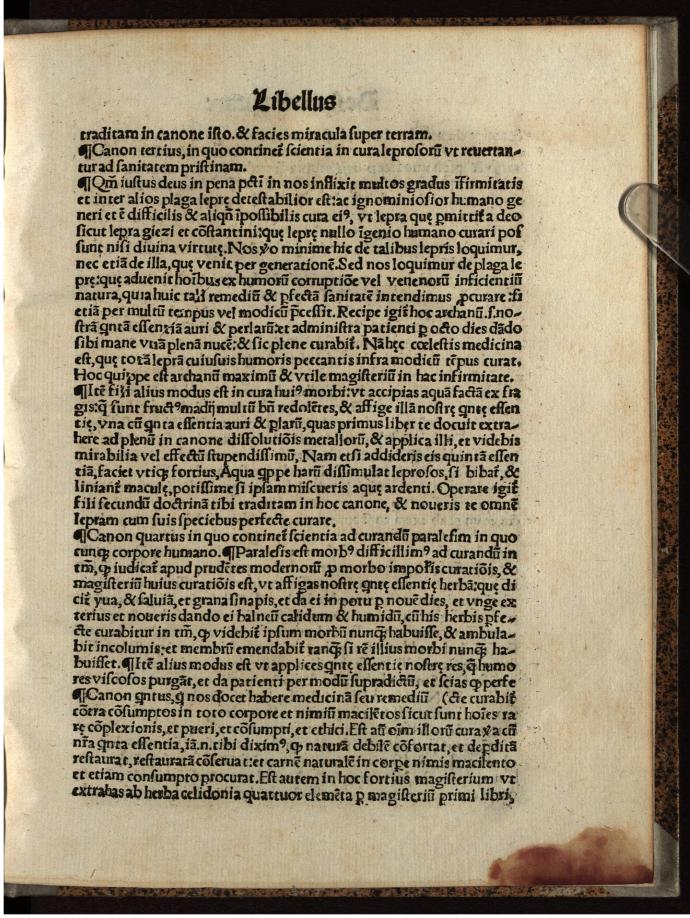 Libellus
traditam in canone isto.& facies miracula super terram.
¶Canon tertius, in quo continet̃ scientia in cura leprosorũ vt reuertan-
tur ad sanitatem pristinam.
¶Qm̃ iustus deus in pena pcti in nos inflixit multos gradus ĩfirmitatis
et inter alios plaga leprę detestabilior est:ac ignominiosior humano ge
neri et ẽ difficilis & aliqñ ĩpossibilis cura eiꝰ, vt lepra quę ꝑmittit̃ a deo
sicut lepra giezi et cõstantini:quę leprę nullo ĩgenio humano curari pos
sunt nisi diuina virtute. Nos ṽo minime hic de talibus lepris loquimur,
nec etiã de illa, quę venit per generationẽ. Sed nos loquimur de plaga le
prę:quę aduenit hoĩbus ex humorũ corruptiõe vel venenorũ inficientiũ
natura, quia huic tali remediũ & ꝑfectã sanitatẽ intendimus ꝓcurare:si
etiã per multũ tempus vel modicũ ꝓcessit. Recipe igit̃ hoc archanũ.s.no-
strã qntã essentiã auri & perlarũ:et administra patienti ꝑ octo dies dãdo
sibi mane vnã plenã nucẽ:& sic plene curabit̃. Nã hęc cœlestis medicina
est, quę totã leprã cuiusuis humoris peccantis infra modicũ tẽpus curat.
Hoc quippe est archanũ maximũ & vtile magisteriũ in hac infirmitate.
¶Itẽ fili alius modus est in cura huiꝰ morbi:vt accipias aquã factã ex fra
gis:q̃ sunt fructꝰ madij multũ bñ redolẽtes, & affige illã nostrę qntę essen
tię, vna cũ qnta essentia auri & plarũ, quas primus liber te docuit extra-
here ad plenũ in canone dissolutiõis metallorũ, & applica illi, et videbis
mirabilia vel effectũ stupendissimũ, Nam etsi addideris eis quintã essen
tiã, faciet vtiqꝫ fortius, Aqua qppe harũ dissimulat leprosos, si bibat̃, &
liniant̃ maculę, potissime si ipsam miscueris aquę ardenti. Operare igit̃
fili secundũ doctrinã tibi traditam in hoc canone, & noueris te omnẽ
lepram cum suis speciebus perfecte curare.
¶Canon quartus in quo continet̃ scientia ad curandũ paralesim in quo
cunqꝫ corpore humano. ¶Paralesis est morbꝰ difficillimꝰ ad curandũ in
tm̃, ꝙ iudicat̃ apud prudẽtes modernorũ ꝓ morbo impolis curatiõis, &
magisteriũ huius curatiõis est, vt affigas nostrę qntę essentię herbã:quę di
cit̃ yua, & saluiã, et grana sinapis, et da ei in potu ꝑ nouẽ dies, et vnge ex
terius et noueris dando ei balneũ calidum & humidũ, cũ his herbis pfe-
cte curabitur in tm̃, ꝙ videbit̃ ipsum morbũ nunqꝫ habuisse, & ambula-
bit incolumis:et membrũ emendabit̃ tanqꝫ si rẽ illius morbi nunqꝫ ha-
buisset. ¶Itẽ alius modus est vt applices qntę essentię nostrę res, q̃ humo
res viscosos purgãt, et da patienti per modũ supradictũ, et scias ꝙ perfe
¶Canon qntus, q̃ nos docet habere medicinã seu remediũ (cte curabit̃
cõtra cõsumptos in toto corpore et nimiũ macilẽtos sicut sunt hoĩes ra
rę cõplexionis, et pueri, et cõsumpti, et ethici. Est aũt oĩm illorũ cura ṽa cũ
nr̃a qnta essentia, iã.n.tibi diximꝰ, ꝙ naturã debilẽ cõfortat, et deꝑditã
restaurat, restauratã cõseruat:et carnẽ naturalẽ in corpe nimis macilento
et etiam consumpto procurat. Est autem in hoc fortius magisterium vt
extrahas ab herba celidonia quattuor elemẽta ꝑ magisteriũ primi libri,